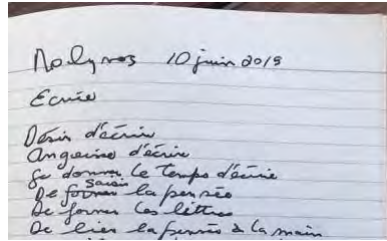 Molyvos 10 juin 2019
Ecrire
Désir d'écrire
Angoisse d'écrire
Se donner le temps d'écrire
De saisir la pensée
De former les lettres
De lier la pensée à la main